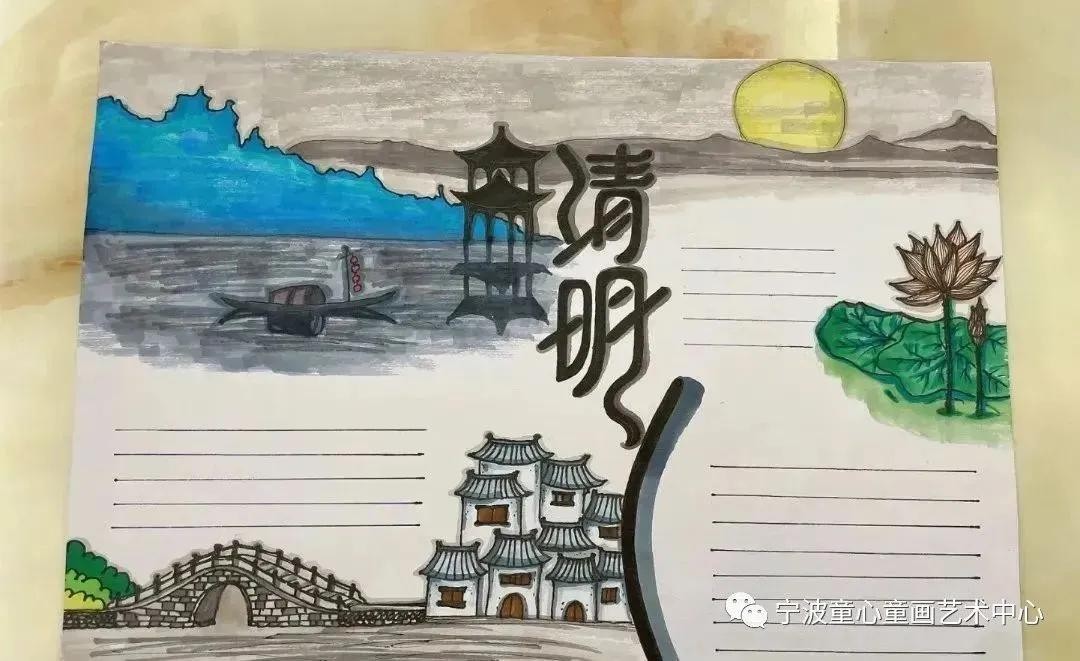 清明
宁波童心童画艺术中心